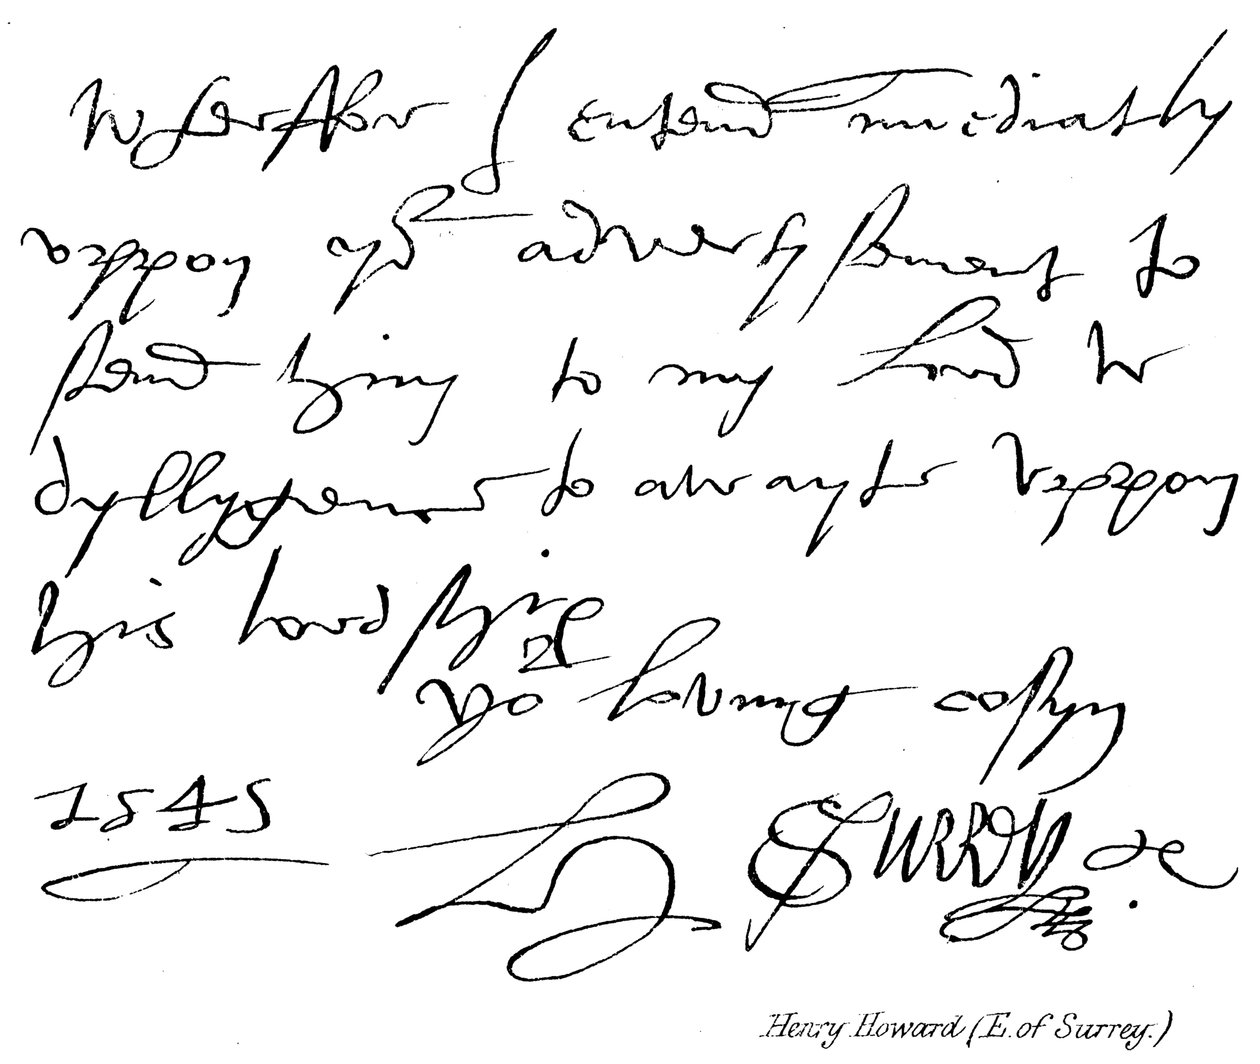 wherffor I entend imediatly
uppon yor advertysement to
send hym to my lord w
dyllygence to awayte uppon
his lordship
yor lovyng cosyn
1545
H Surrey
Henry Howard (E. of Surrey.)